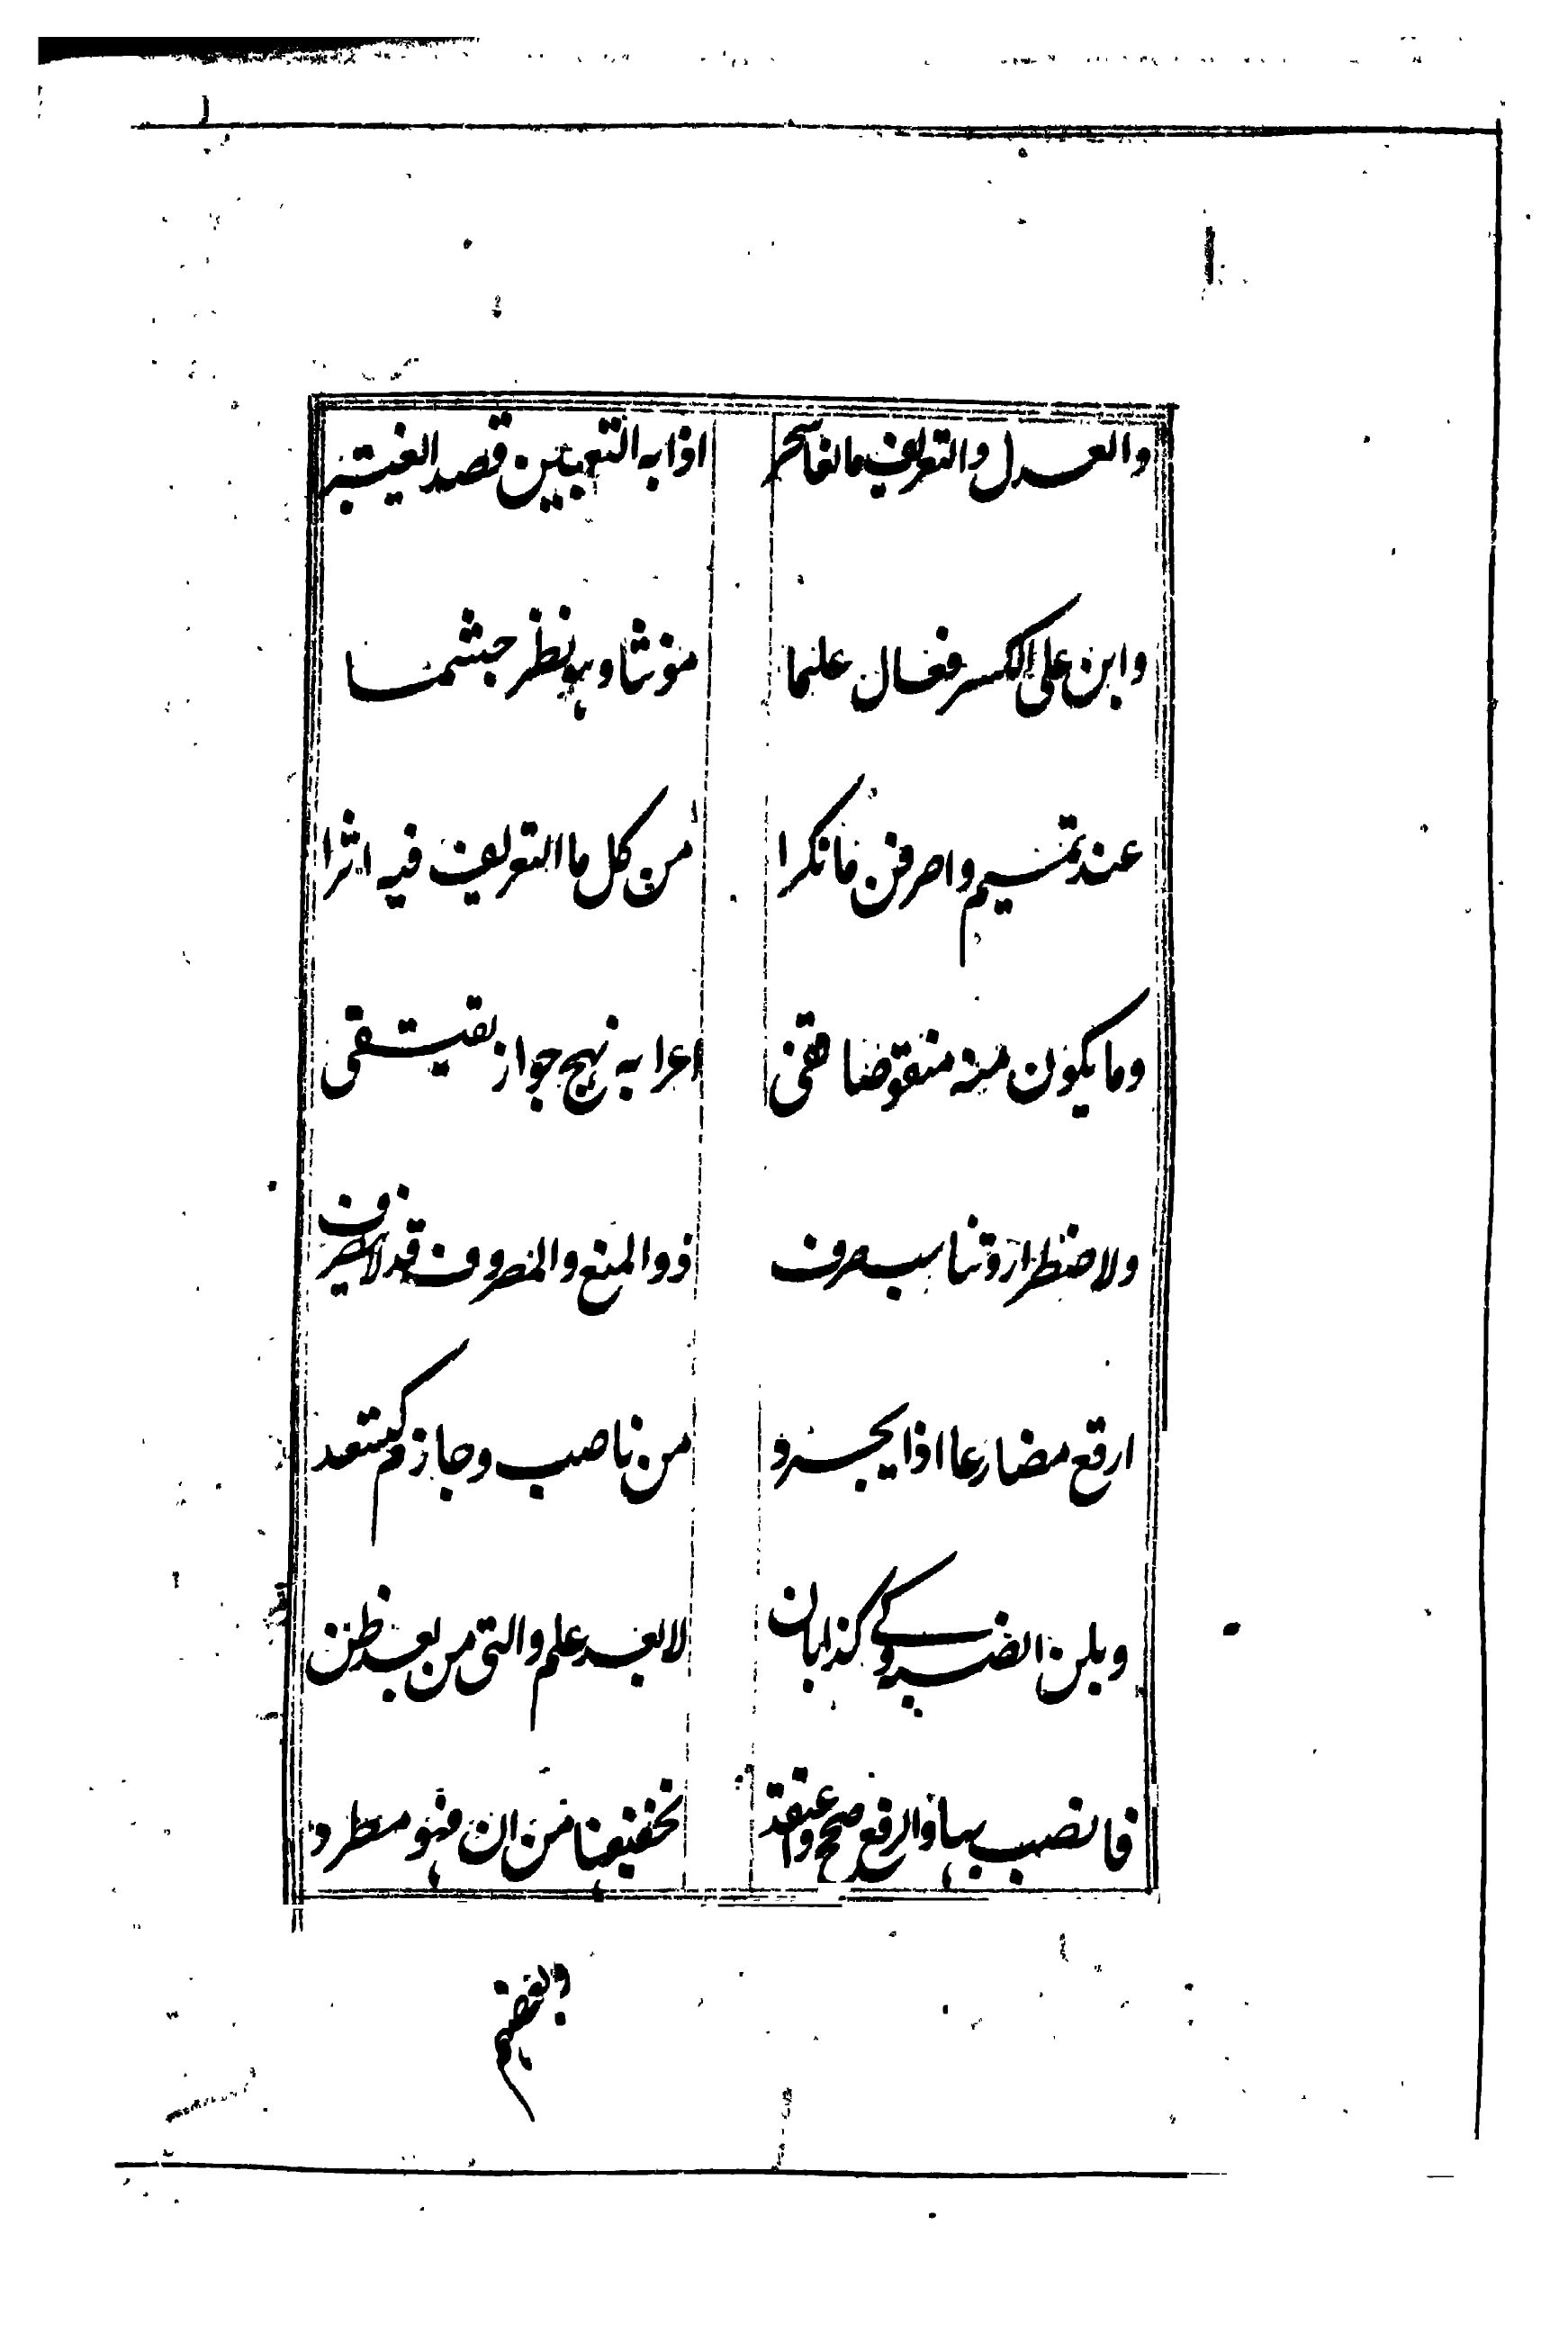 والعدل والتعريف مانعا سحر اذا به التعيين قصدا يعتبر
وابن على الكسر فعال علما مؤنثا وهو نظير جشما
عند تميم واصرفن ما نكرا من كل ما التعريف فيه اثرا
وما يكون منه منقوصا ففى اعرابه نهج جوار يقتفى
ولاضطرار وتناسب صرف ذو المنع والمصروف قد لا ينصرف
ارفع مضارعا اذا يجرد من ناصب وجازم كتسعد
وبلن انصبه وكى كذا بان لا بعد علم والتى من بعد ظن
فانصب بها والرفع صحح واعتقد تخفيفها من ان فهو مطرد
وبعضهم